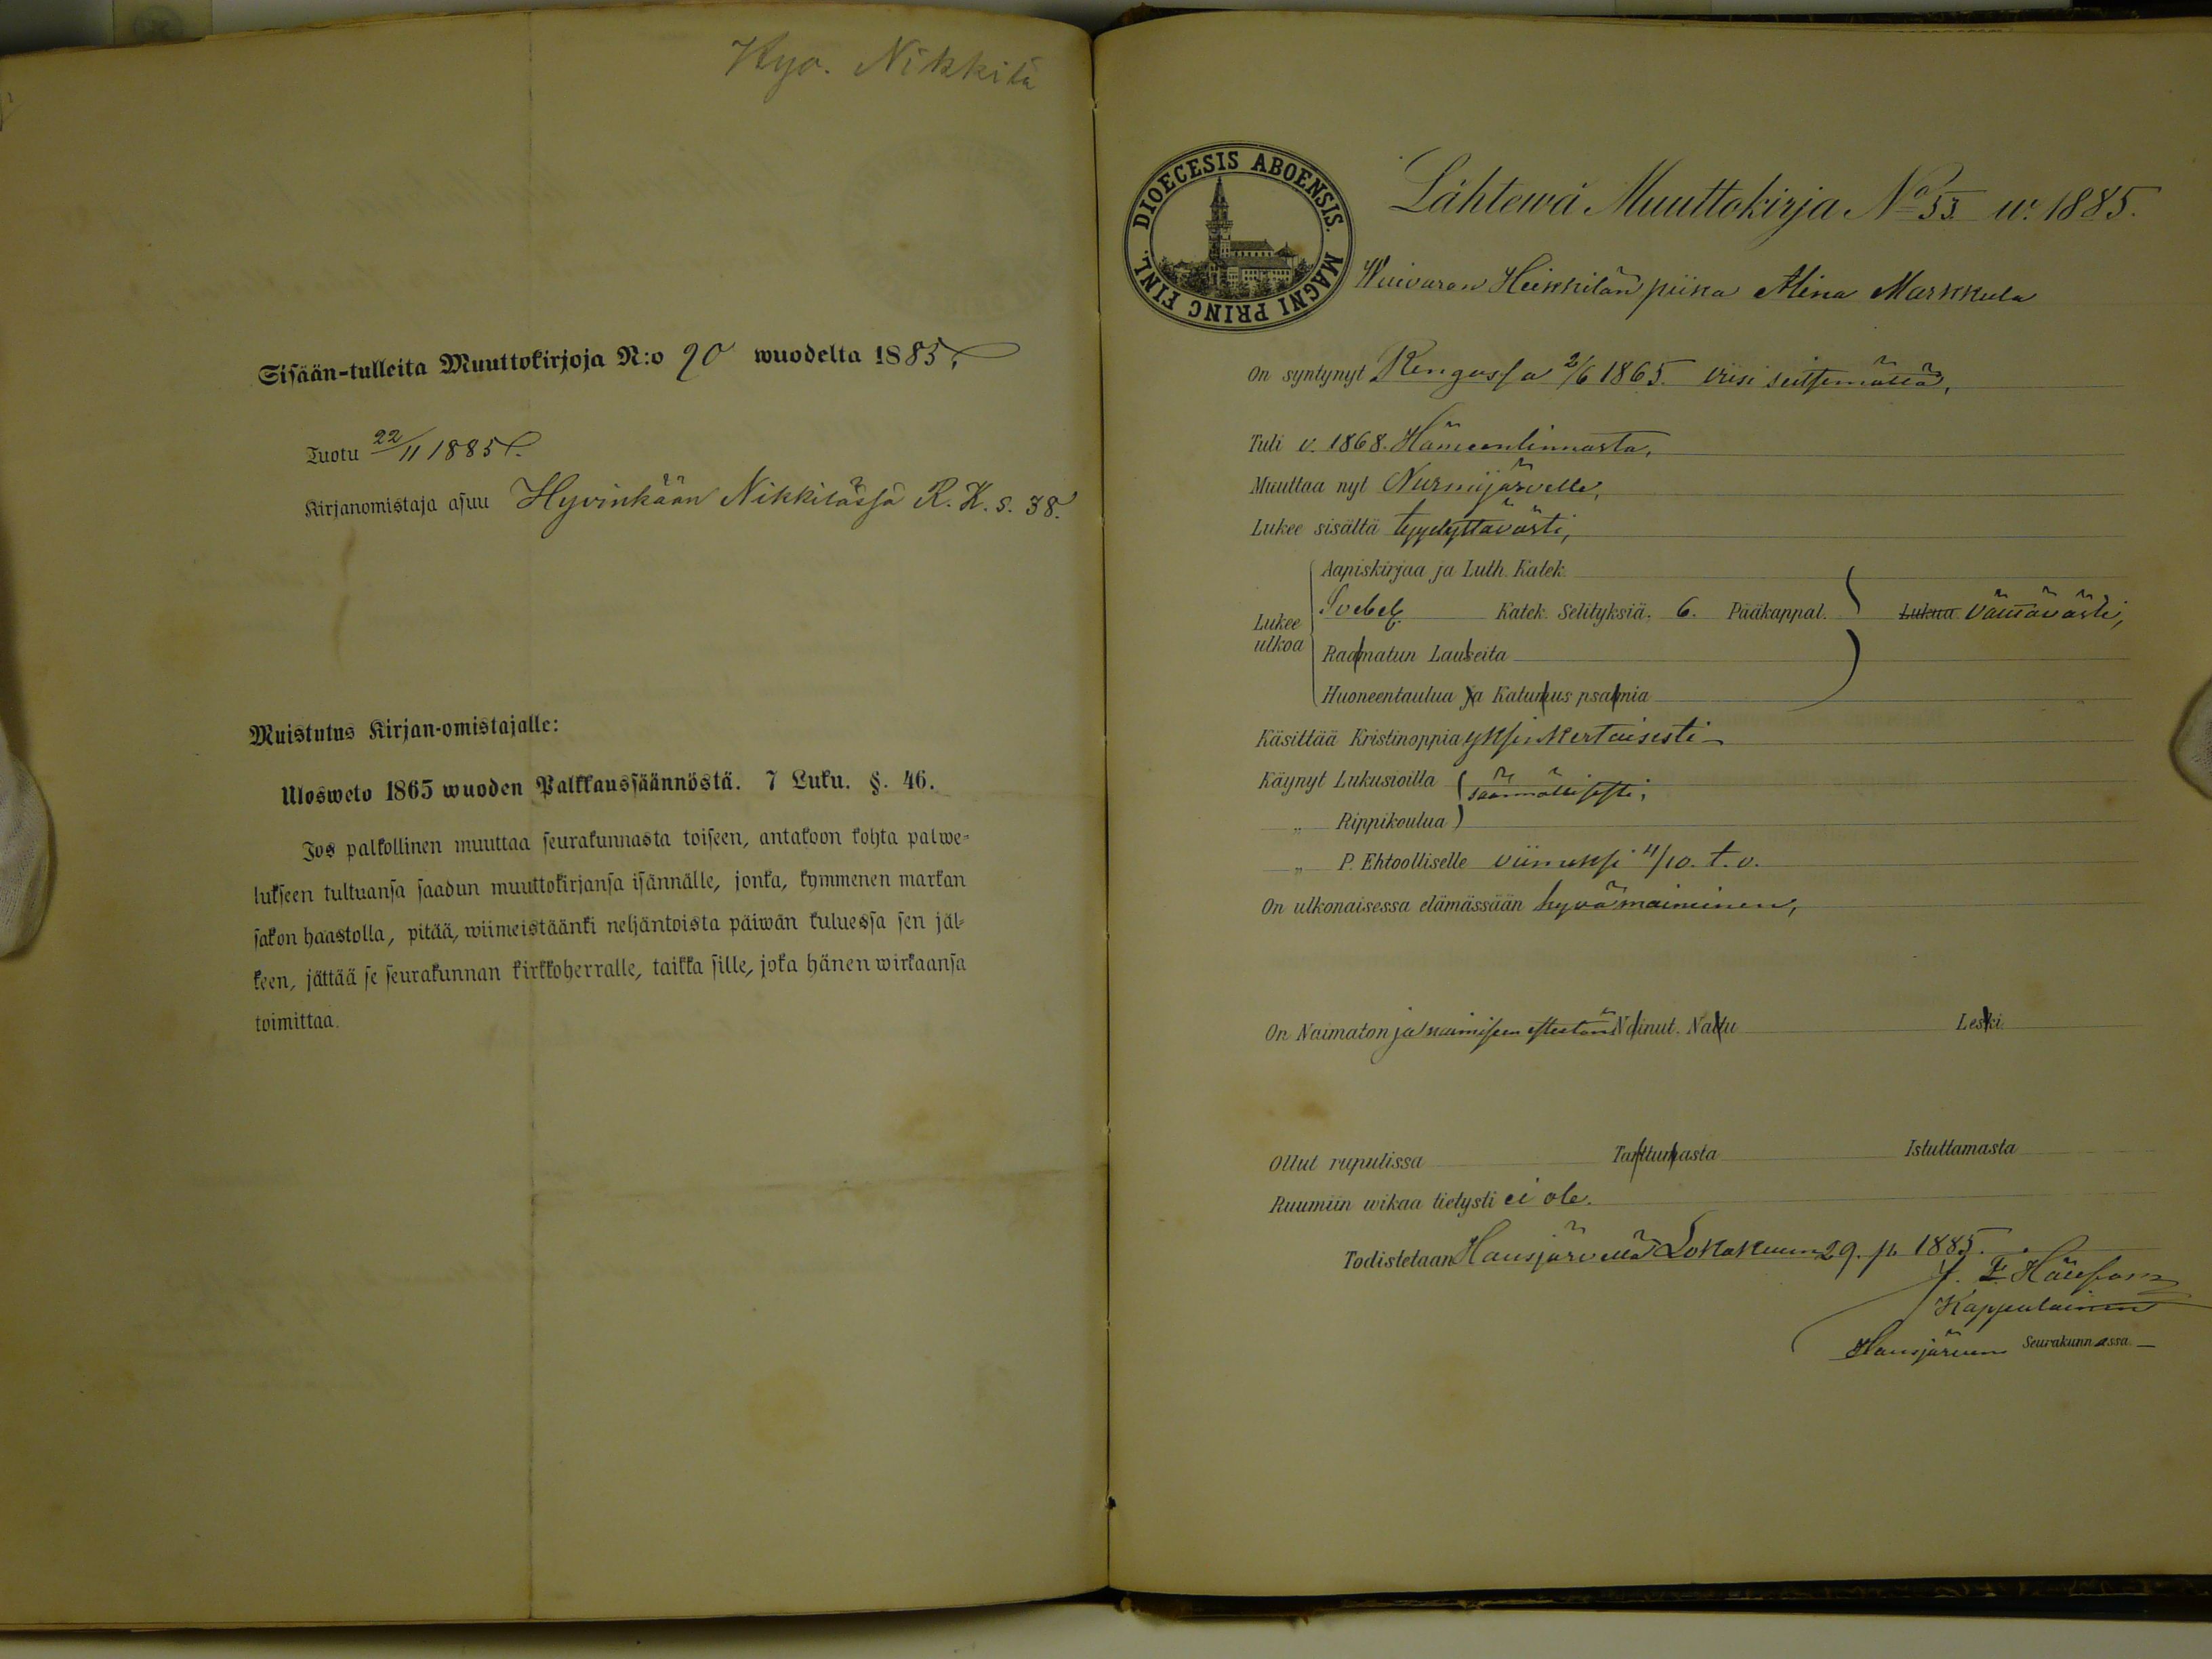 Hyv. Nikkilä
Sisään-tulleita Muuttokirjoja N:o 90 wuodelta 1885.
Tuotu 22/11 1885.
Kirjanomistaja asuu Hyvinkään Nikkilässä R. K. s. 38.
Muistutus Kirjan-omistajalle:
Ulosweto 1865 wuoden Palkkaussäännöstä. 7 Luku. §. 46.
Jos palkollinen muuttaa seurakunnasta toiseen, antakoon kohta palwe-
lukseen tultuansa saadun muuttokirjansa isännälle, jonka, kymmenen markan
sakon haastolla, pitää, wiimeistäänki neljäntoista päiwän kuluessa sen jäl-
keen, jättää se seurakunnan kirkkoherralle, taikka sille, joka hänen wirkaansa
toimittaa.
DIOECESIS ABOENSIS. MAGNI PRINC FINL.
Lähtewä Muuttokirja No 55. w. 1885.
Heikkilän piika Alina Markkula
On syntynyt Rengossa 2/6 1865. viisi seitsemättä,
Tuli v. 1868. Hämeenlinnasta,
Muuttaa nyt Nurmijärvelle,
Lukee sisältä tyydyttävästi,
Aapiskirjaa ja Luth. Katek.
Lukee ulkoa Svebel. Katek. Selityksiä. 6. Pääkappal. Lukua välttävästi,
Raamatun Lauseita
Huoneentaulua ja Katumus psalmia
Käsittää Kristinoppia yksinkertaisesti
Käynyt Lukusioilla säännöllisesti,
„ Rippikoulua
„ P. Ehtoolliselle viimeksi 11/10. t. v.
On ulkonaisessa elämässään hyvämaineinen,
On Naimaton ja naimiseen esteetön Nainut. Naitu Leski
Ollut rupulissa Tarttumasta Istuttamasta
Ruumiin wikaa tietysti ei ole.
Todistetaan Hausjärvellä Lokakuun 29. p. 1885.
Kappalainen
Hausjärven Seurakunnassa.